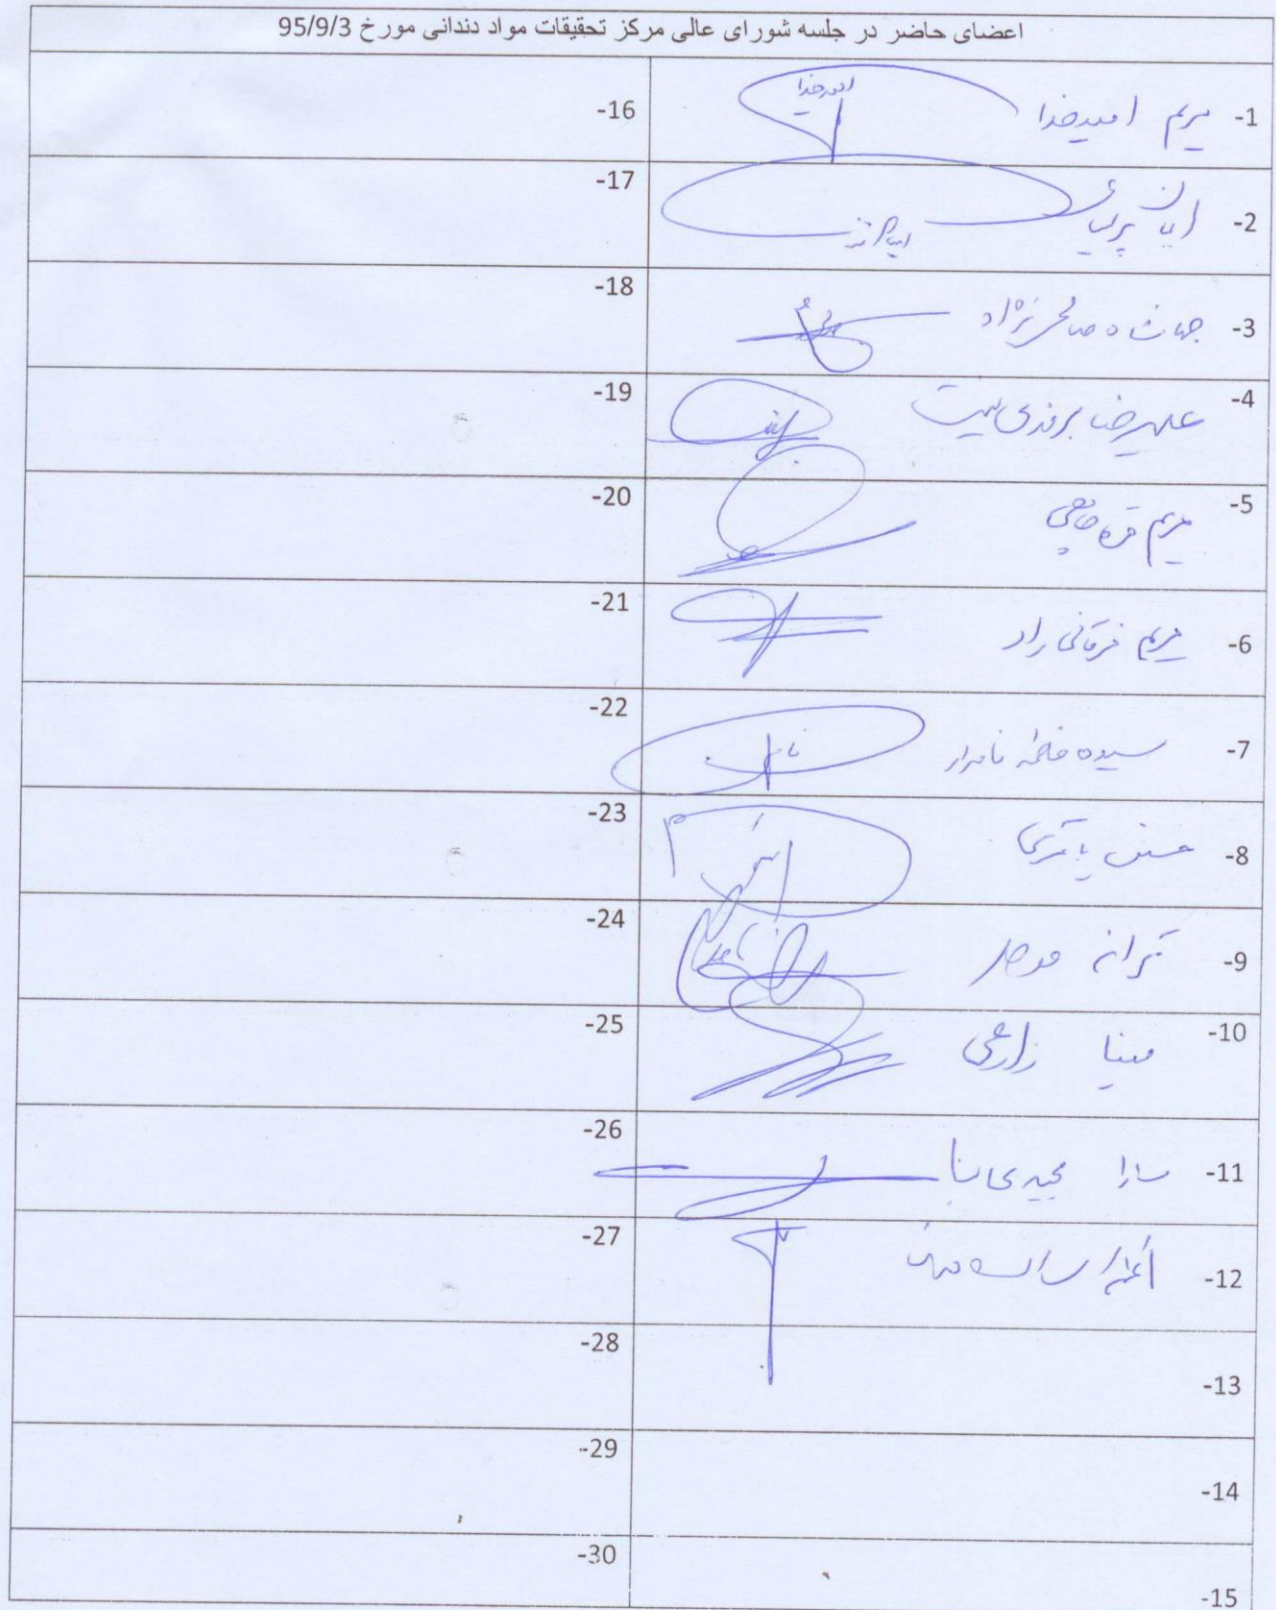 اعضای حاضر در جلسه شورای عالی مرکز تحقیقات مواد دندانی مورخ 95/9/3
-1 مریم امیدخدا
امیدخدا
-2
-3 جهانشاه صالح نژاد
-4 علیرضا برومندی
-5 مریم قره چاهی
-6 مریم فرقانی راد
-7 سیده فاطمه نامدار
-8 حسنی
-9 ترانه موحد
-10 مینا زارعی
-11 سارا مجیدی نیا
-12
-13
-14
-15
-16
-17
-18
-19
-20
-21
-22
-23
-24
-25
-26
-27
-28
-29
-30